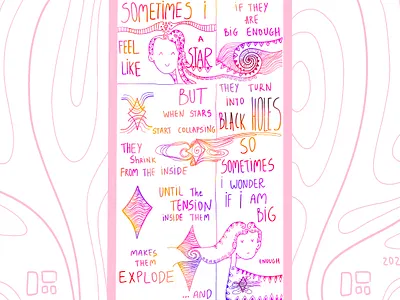 SOMETIMES i
FEEL
LIKE
A
STAR
BUT
WHEN STARS
START COLLAPSING
THEY
SHRINK
FROM THE INSIDE
UNTIL THE
TENSION
INSIDE THEM
MAKES
THEM
EXPLODE
... AND
IF THEY
ARE
BIG ENOUGH
THEY TURN
INTO
BLACK HOLES
SO
SOMETIMES
i WONDER
IF i AM
BIG
ENOUGH